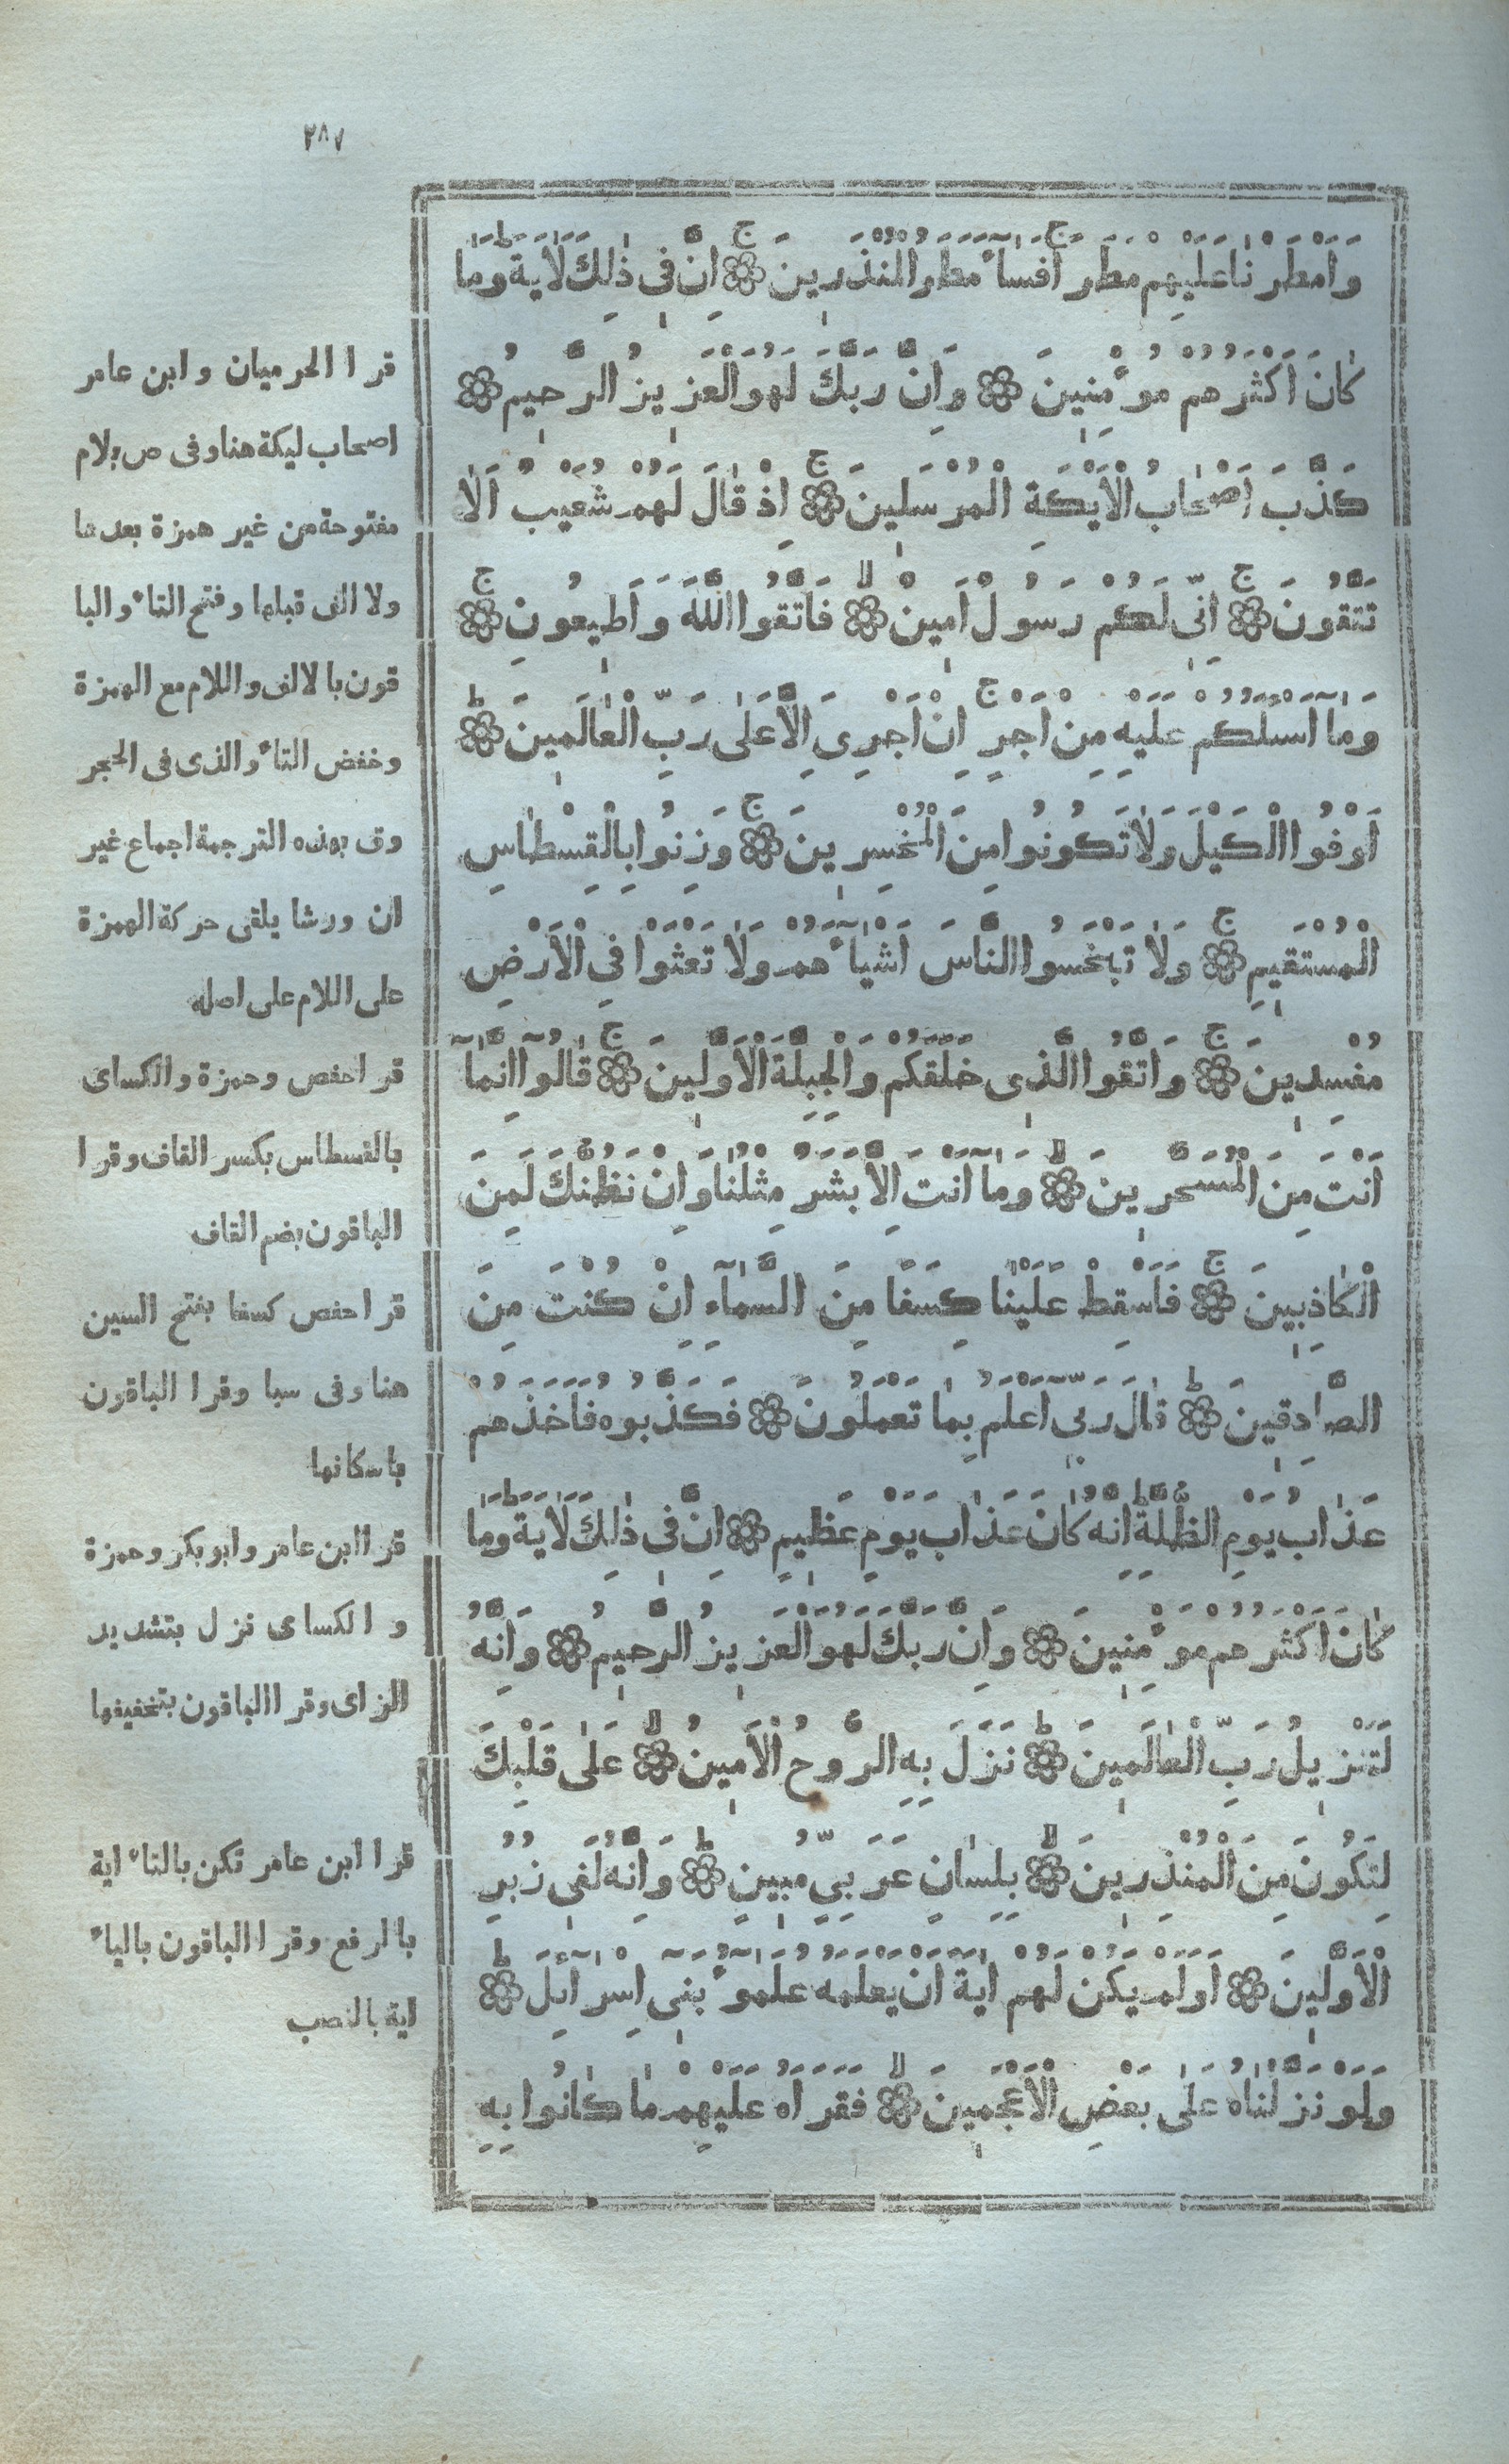 ٢٨٧
وَاَمْطَرْنٰا عَلَيْهِم مَطَراً فَسٰاءَ مَطَرُ الْمُنْذَرِينَ ۞ اِنَّ فٖى ذٰلِكَ لَاٰيَةً وَمٰا
كٰانَ اَكْثَرُهُم مُؤْمِنِينَ ۞ وَاِنَّ رَبَّكَ لَهُوَ الْعَزِيزُ الرَّحِيمُ ۞
كَذَّبَ اَصْحٰابُ الْاَيْكَةِ الْمُرْسَلِينَ ۞ اِذْ قٰالَ لَهُمْ شُعَيْبٌ اَلٰا
تَتَّقُونَ ۞ اِنِّى لَكُمْ رَسُولٌ اَمِينٌ ۞ فَاتَّقُوا اللّٰهَ وَاَطِيعُونِ ۞
وَمٰا اَسْـَٔلُكُمْ عَلَيْهِ مِنْ اَجْرٍ اِنْ اَجْرِىَ اِلَّا عَلٰى رَبِّ الْعٰالَمِينَ ۞
اَوْفُوا الْكَيْلَ وَلٰا تَكُونُوا مِنَ الْمُخْسِرِينَ ۞ وَزِنُوا بِالْقِسْطٰاسِ
الْمُسْتَقِيمِ ۞ وَلٰا تَبْخَسُوا النَّاسَ اَشْيٰاءَهُمْ وَلٰا تَعْثَوْا فِى الْاَرْضِ
مُفْسِدِينَ ۞ وَاتَّقُوا الَّذِى خَلَقَكُمْ وَالْجِبِلَّةَ الْاَوَّلِينَ ۞ قٰالُوٓا اِنَّمٰٓا
اَنْتَ مِنَ الْمُسَحَّرِينَ ۞ وَمٰٓا اَنْتَ اِلَّا بَشَرٌ مِثْلُنٰا وَاِنْ نَظُنُّكَ لَمِنَ
الْكٰاذِبِينَ ۞ فَاَسْقِطْ عَلَيْنٰا كِسَفًا مِنَ السَّمٰآءِ اِنْ كُنْتَ مِنَ
الصَّادِقِينَ ۞ قٰالَ رَبِّىٓ اَعْلَمُ بِمٰا تَعْمَلُونَ ۞ فَكَذَّبُوهُ فَاَخَذَهُمْ
عَذٰابُ يَوْمِ الظُّلَّةِ اِنَّهُ كٰانَ عَذٰابَ يَوْمٍ عَظِيمٍ ۞ اِنَّ فٖى ذٰلِكَ لَاٰيَةً وَمٰا
كٰانَ اَكْثَرُهُم مُؤْمِنِينَ ۞ وَاِنَّ رَبَّكَ لَهُوَ الْعَزِيزُ الرَّحِيمُ ۞ وَاِنَّهُ
لَتَنْزِيلُ رَبِّ الْعٰالَمِينَ ۞ نَزَلَ بِهِ الرُّوحُ الْاَمِينُ ۞ عَلٰى قَلْبِكَ
لِتَكُونَ مِنَ الْمُنْذِرِينَ ۞ بِلِسٰانٍ عَرَبِيٍّ مُبِينٍ ۞ وَاِنَّهُ لَفٖى زُبُرِ
الْاَوَّلِينَ ۞ اَوَلَمْ يَكُنْ لَهُمْ اٰيَةً اَنْ يَعْلَمَهُ عُلَمٰٓؤُ بَنٖٓى اِسْرٰٓائِلَ ۞
وَلَوْ نَزَّلْنٰاهُ عَلٰى بَعْضِ الْاَعْجَمِينَ ۞ فَقَرَاَهُ عَلَيْهِمْ مٰا كٰانُوا بِهِ
قرا الحرميان وابن عامر
اصحاب ليكة هنا وفى ص بلام
مفتوحة من غير همزة بعدها
ولا الف قبلها وفتح التاء والبا
قون بالالف واللام مع الهمزة
وخفض التاء والذى فى الحجر
وق بهذه الترجمة اجماع غير
ان ورشا يلقى حركة الهمزة
على اللام على اصله
قرا حفص وحمزة والكساى
بالقسطاس بكسر القاف وقرا
الباقون بضم القاف
قرا حفص كسفا بفتح السين
هنا وفى سبا وقرا الباقون
باسكانها
قرا ابن عامر وابو بكر وحمزة
والكساى نزل بتشديد
الزاى وقرا الباقون بتخفيفها
قرا ابن عامر تكن بالتاء اية
بالرفع وقرا الباقون بالياء
اية بالنصب